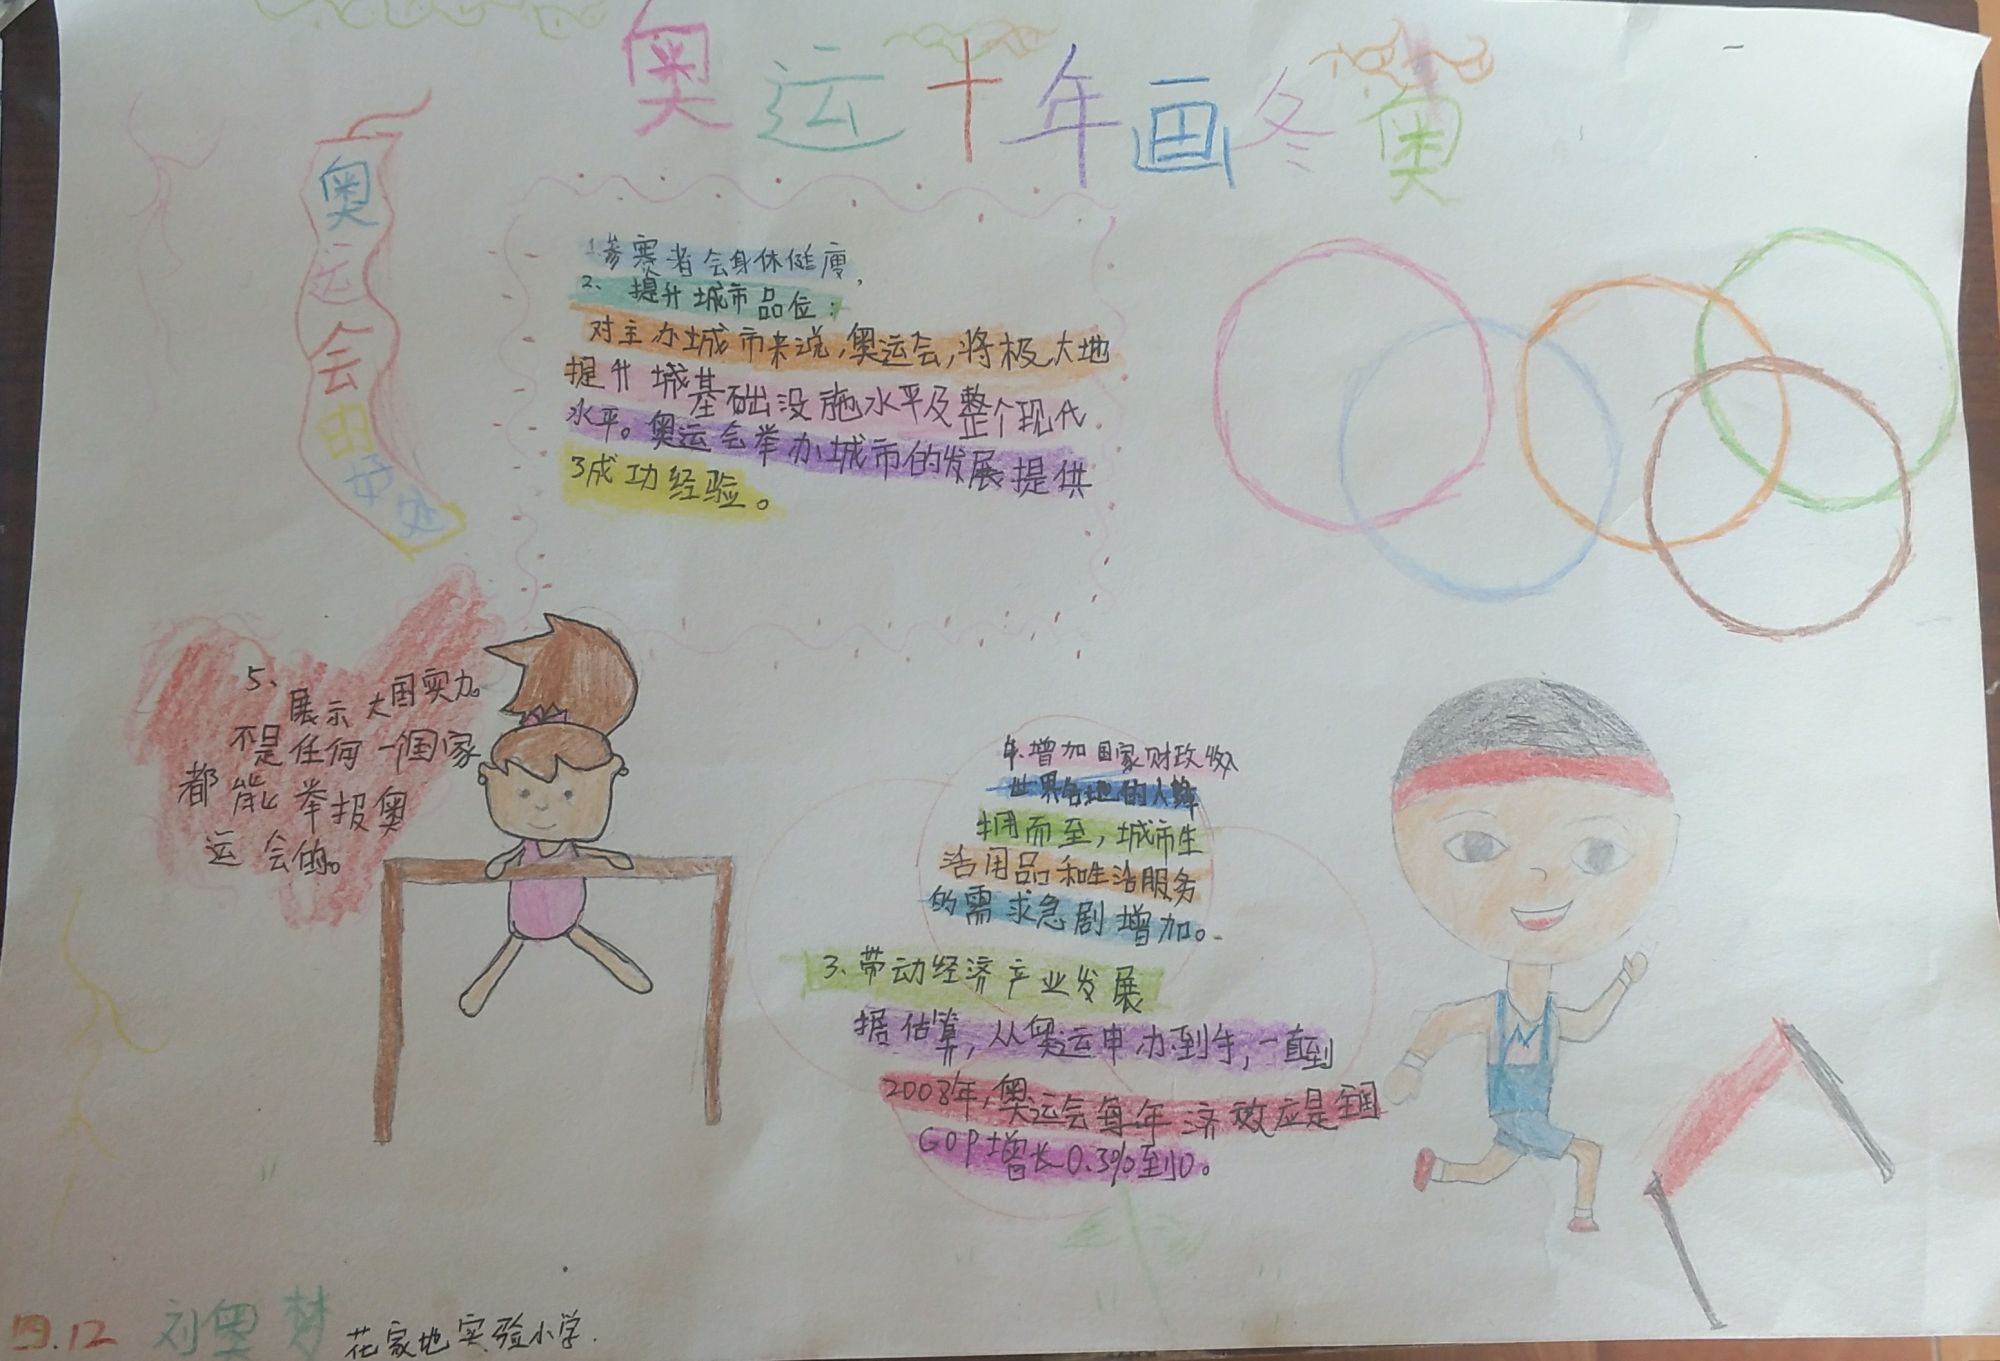 奥运十年画冬奥
奥运会的好处
1.参赛者会身体健康,
2、提升城市品位:
对主办城市来说,奥运会,将极大地
提升城基础没施水平及整个现代
水平。奥运会举办城市的发展提供
3成功经验。
5、展示大国实力。
不是任何一国家
都能举报奥
运会的。
4.增加国家财政收入
世界各地的人蜂
拥而至,城市生
活用品和生活服务
的需求急剧增加。
3、带动经济产业发展
据估算,从奥运申办到手,一直到
2008年,奥运会每年济效应是全国
GOP增长0.3%到0。
四.12 刘奥梦 花家地实验小学.